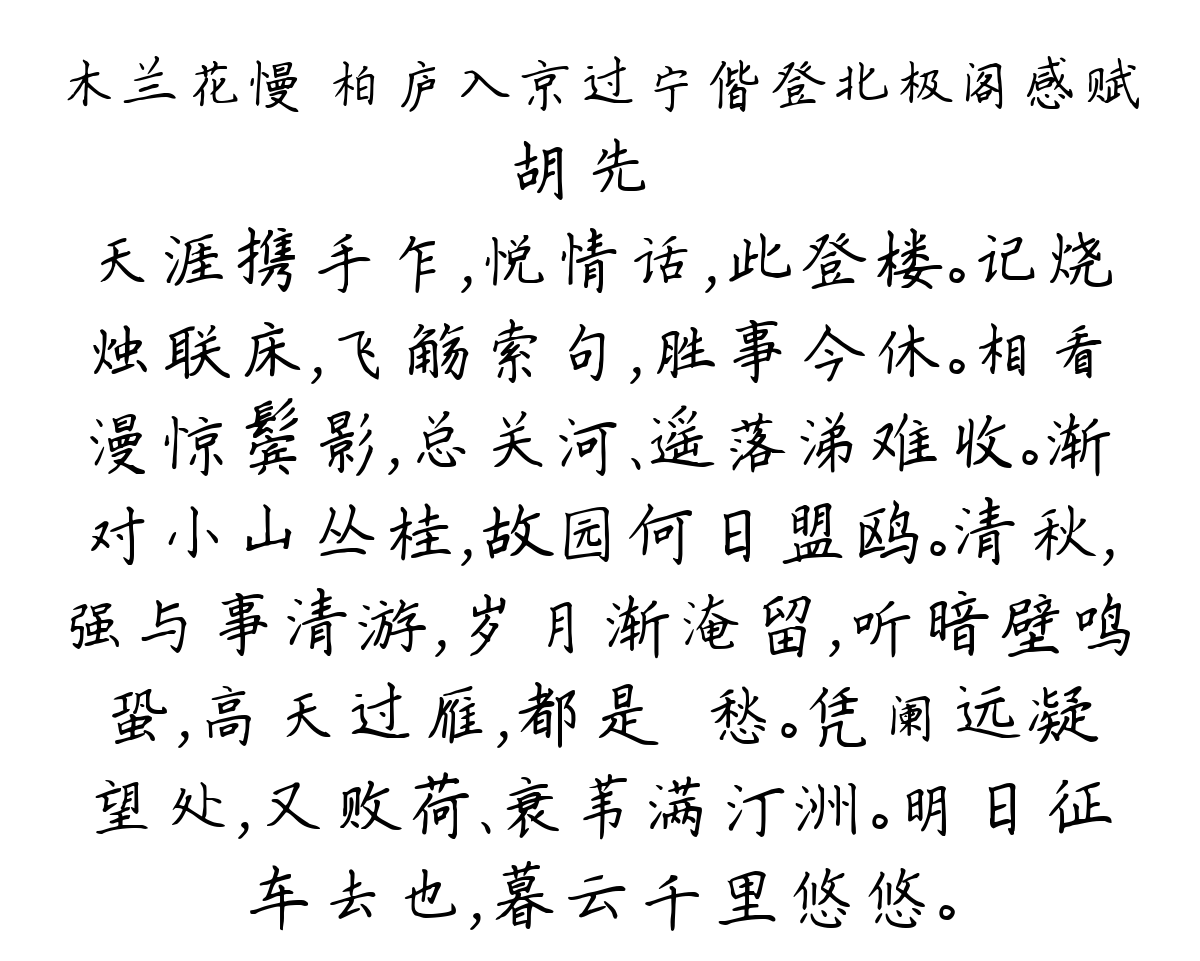 木兰花慢 柏庐入京过宁偕登北极阁感赋
胡先
天涯携手乍,悦情话,此登楼。记烧
烛联床,飞觞索句,胜事今休。相看
漫惊鬓影,总关河、遥落涕难收。渐
对小山丛桂,故园何日盟鸥。清秋,
强与事清游,岁月渐淹留,听暗壁鸣
蛩,高天过雁,都是 愁。凭阑远凝
望处,又败荷、衰苇满汀洲。明日征
车去也,暮云千里悠悠。